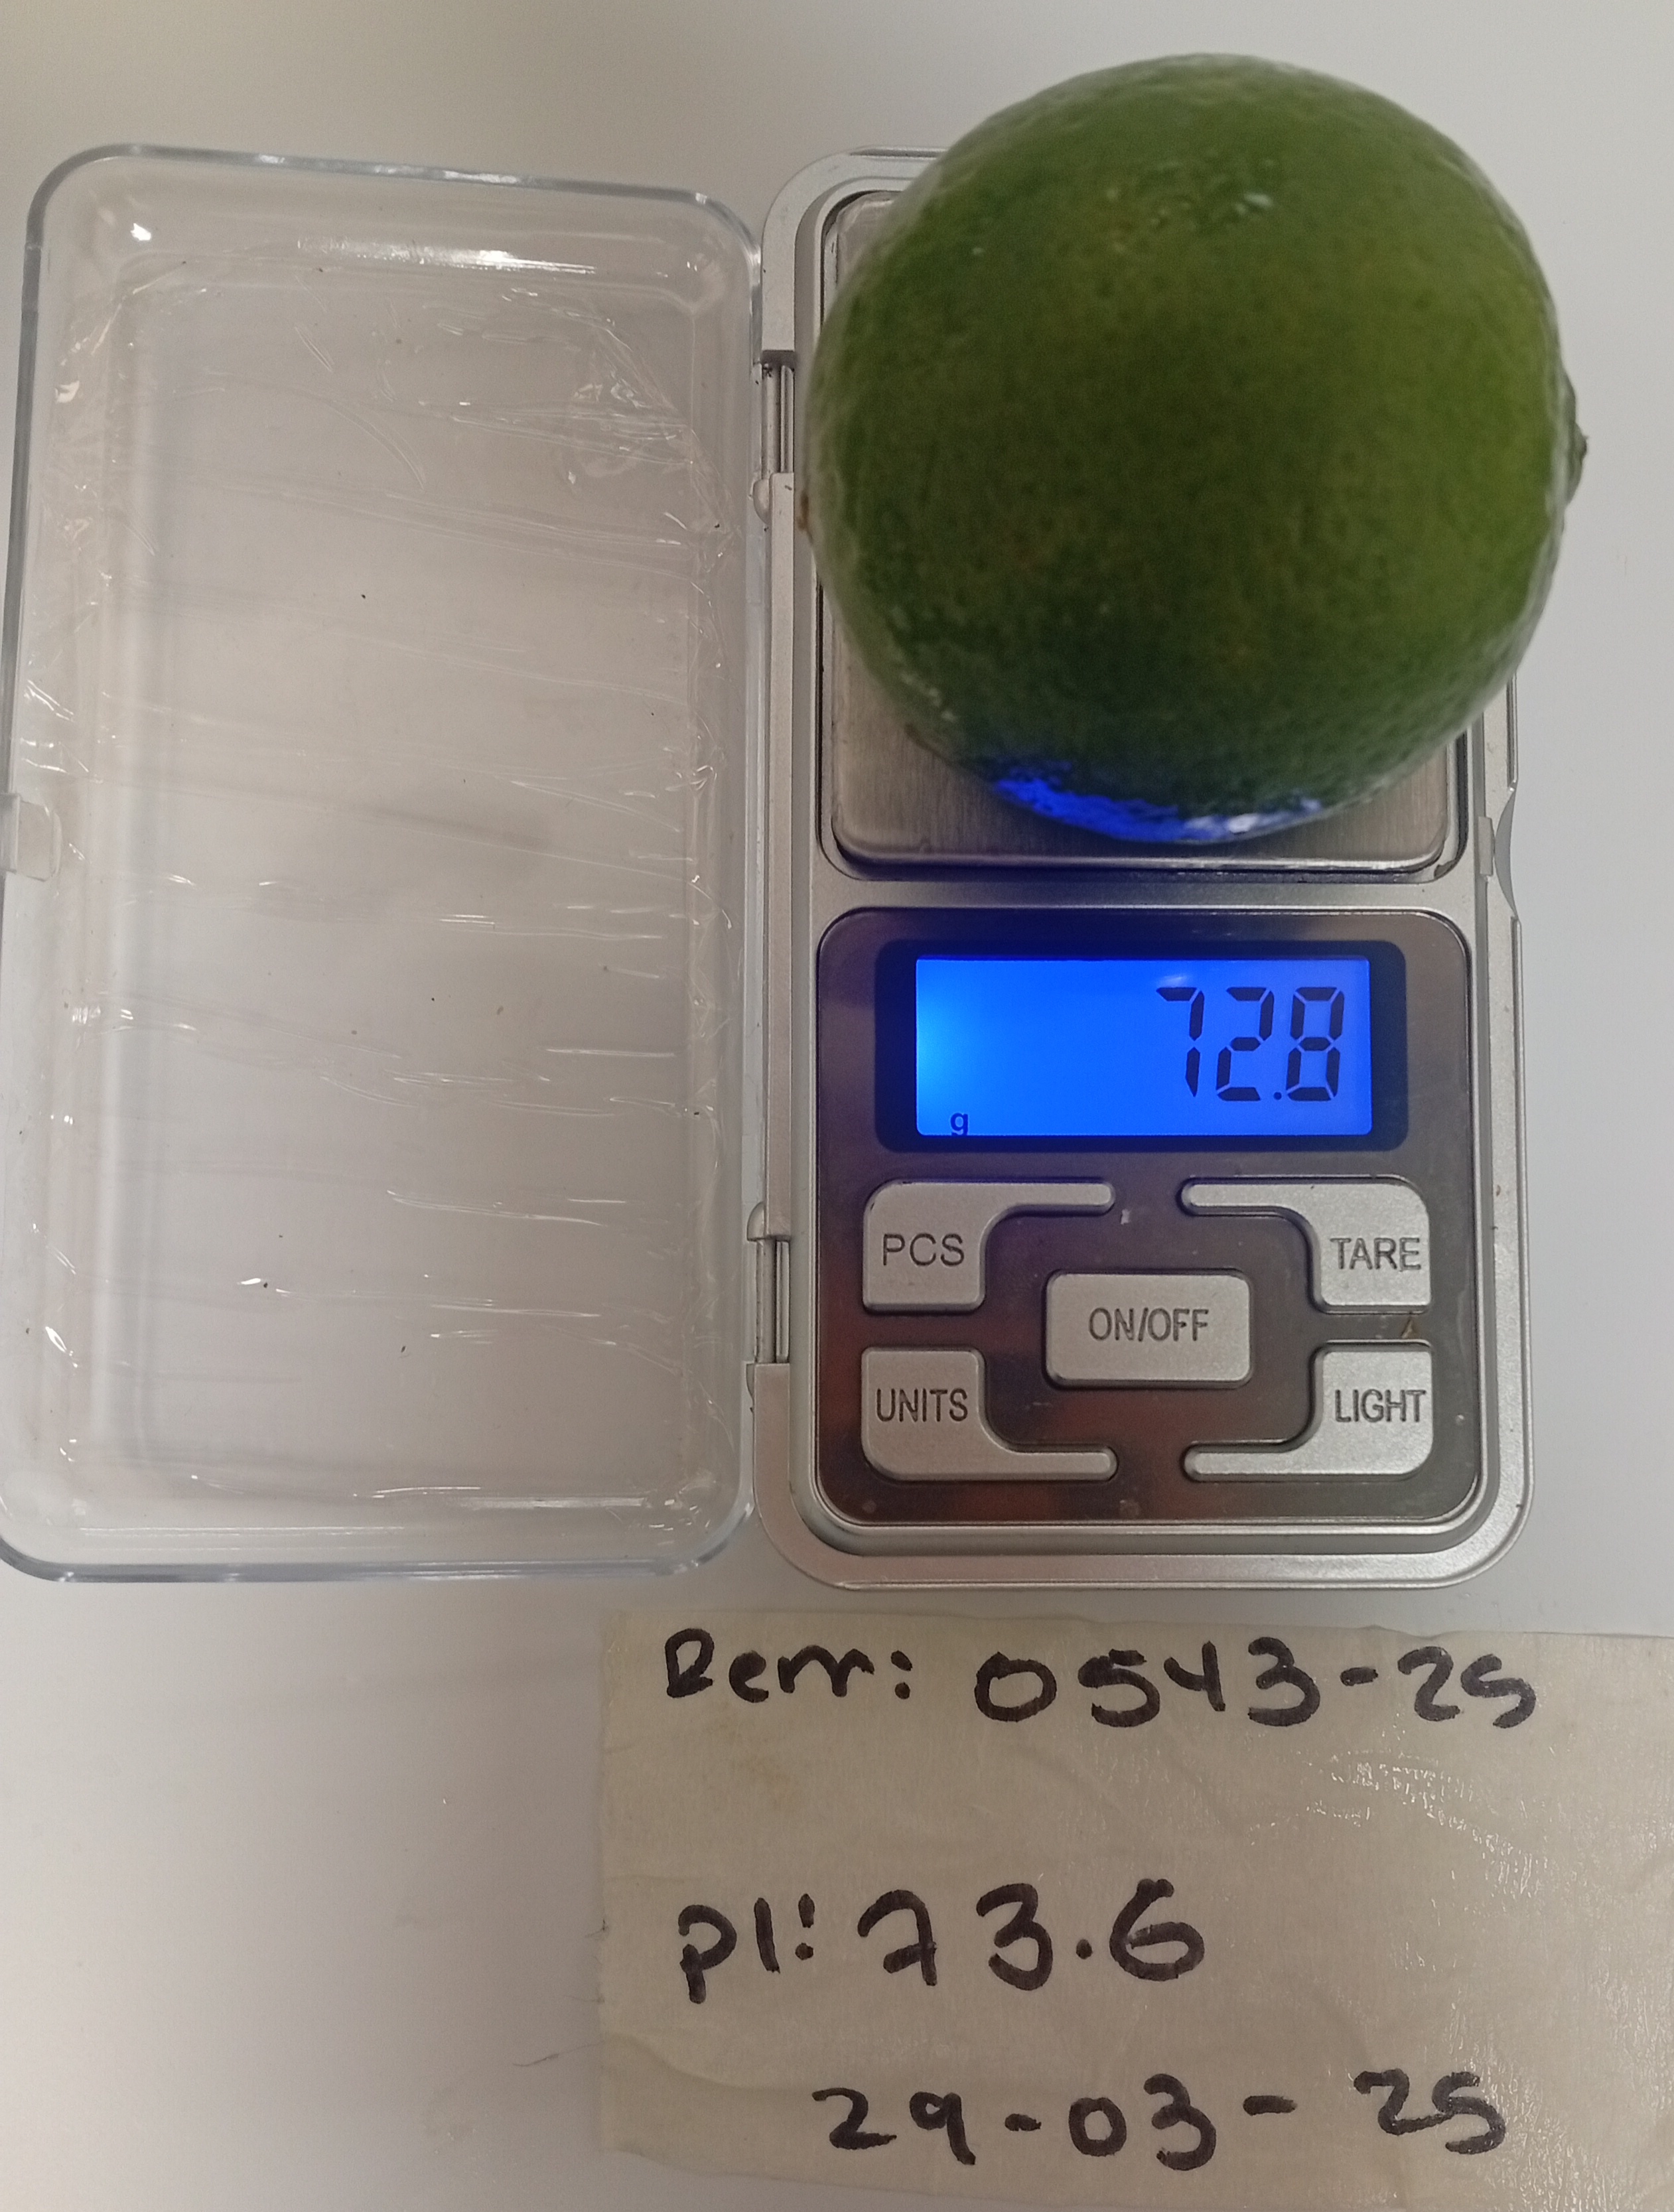 72.8
g
PCS
TARE
ON/OFF
UNITS
LIGHT
Rem: 0543-25
p1: 73.6
29-03-25